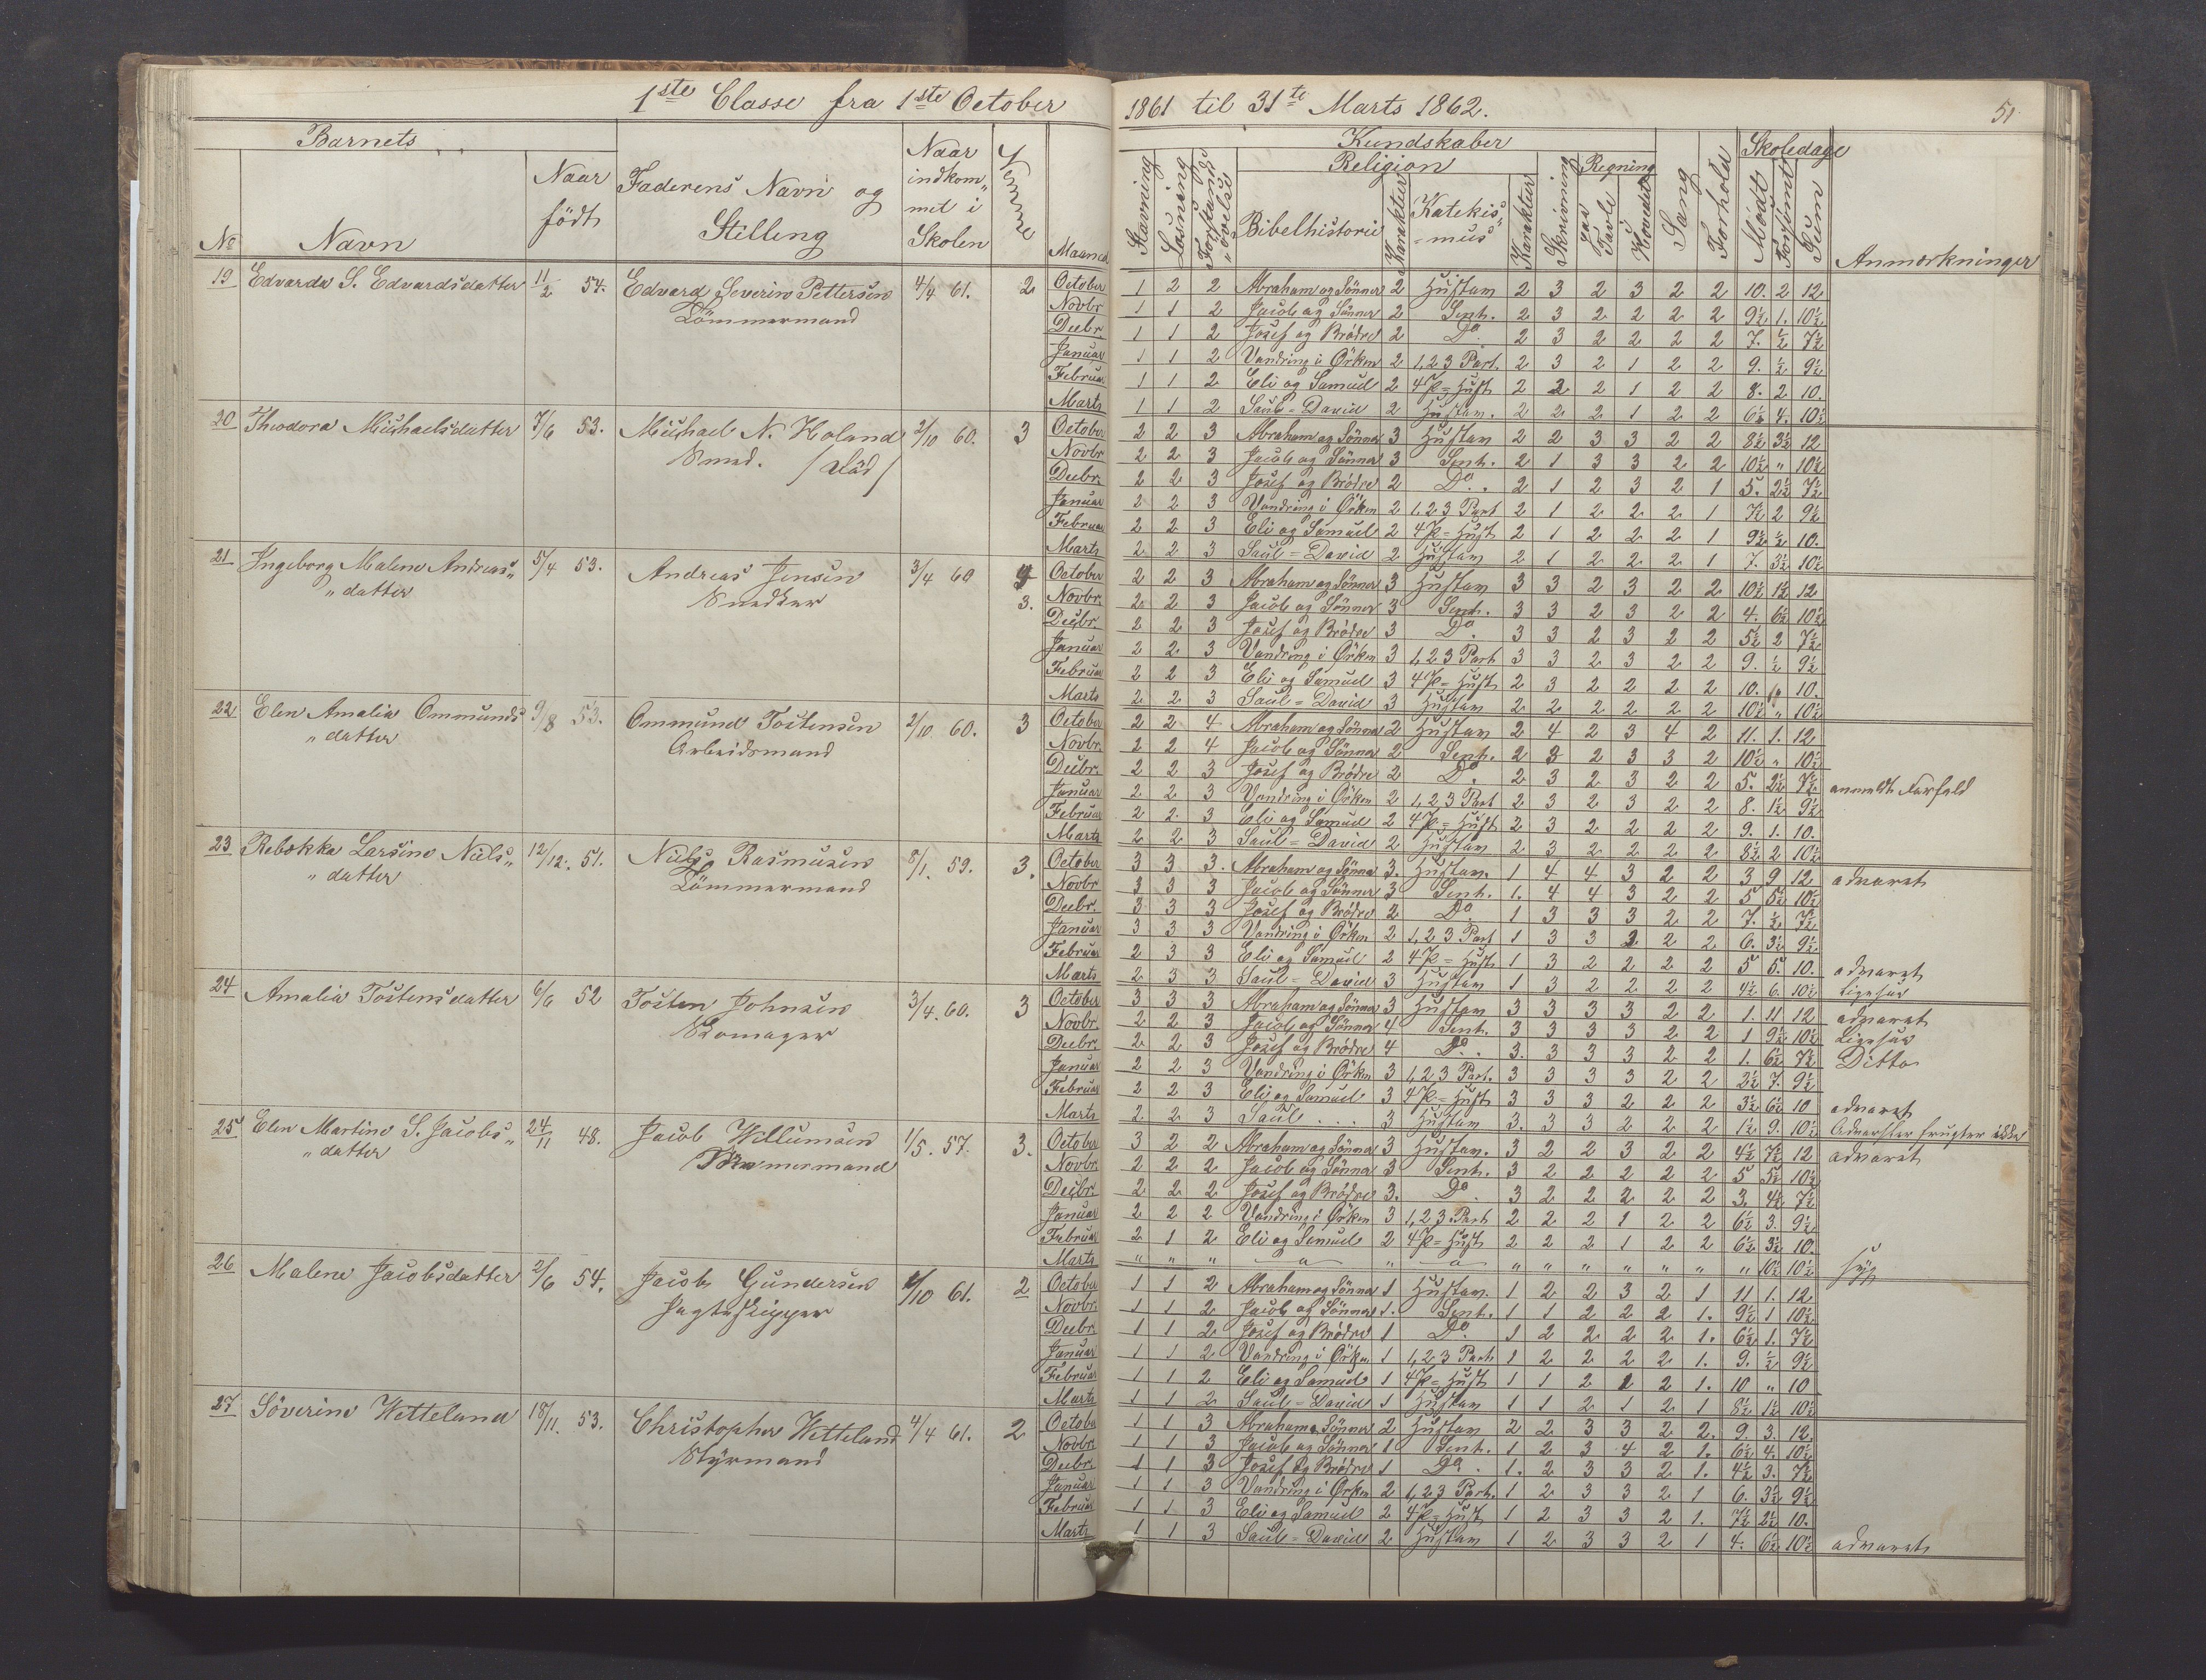 1ste Classe fra 1ste October 1861 til 31te Marts 1862.
51
Barnets
Kundskaber
Skoledage
Religion
Regning
No
Navn
Naar født
Faderens Navn og Stilling
Naar indkom„ met i Skolen
Nemme
Maaned
Stavning
Læsning
Forstands„ øvelse
Bibelhistorie
Karakter
Katekis„ =mus
Karakter
Skrivning
paa Tavle
Hovedet
Sang
Forhold
Mødt
Forsømt
Sum
Anmærkninger
19 Edvarda S. Edvardsdatter 11/2 54. Edvard Severin Pettersen 4/4 61. 2 October 1 2 2 Abraham og Sønner 2 Hustav 2 3 2 3 2 2 10. 2 12
Tömmermand Novbr 1 1 2 Jacob og Sønner 2 Sent. 2 3 2 2 2 2 9½ 1. 10½
Decbr 1 1 2 Josef og Brödre 2 Do. 2 3 2 2 2 2 7. ½ 7½
Januar 1 1 2 Vandring i Örken 2 1,2,3 Part. 2 3 2 1 2 2 9. ½ 9½
Februar 1 1 2 Eli og Samuel 2 4 P = Hust 2 2 2 1 2 2 8. 2 10.
Marts 1 1 2 Saul = David 2 Hustav. 2 2 2 1 2 2 6½ 4. 10½
20 Theodora Michaelsdatter 7/6 53. Michael N. Holand 2/10 60. 3 October 2 2 3 Abraham og Sønner 3 Hustav 2 2 3 3 2 2 8½ 3½ 12
Smed. /död/ Novbr 2 2 3 Jacob og Sønner 3 Sent. 2 1 3 3 2 2 10½ „ 10½
Decbr. 2 2 3 Josef og Brödre 2 Do. 2 1 2 3 2 1 5. 2½ 7½
Januar 2 2 3 Vandring i Örken 2 1,2,3 Part 2 1 2 2 2 1 7½ 2 9½
Februar 2 2 3 Eli og Samuel 2 4 P = Hust 2 1 2 2 2 1 9½ ½ 10.
Marts 2 2 3 Saul = David 2 Hustav 2 1 2 2 2 1 7. 3½ 10½
21 Ingeborg Malene Andreas„ 5/4 53. Andreas Jensen 3/4 60 3. October 2 2 3 Abraham og Sønner 3 Hustav 3 3 2 3 2 2 10½ 1½ 12
„datter Snedker Novbr. 2 2 3 Jacob og Sønner 3 Sent. 3 3 2 3 2 2 4. 6½ 10½
Decbr. 2 2 3 Josef og Brödre 3 Do. 3 3 2 3 2 2 5½ 2 7½
Januar 2 2 3 Vandring i Örken 3 1,2,3 Part 3 3 2 3 2 2 9. ½ 9½
Februar 2 2 3 Eli og Samuel 3 4 P = Hust 2 3 2 2 2 2 10. „ 10.
Marts 2 2 3 Saul = David 3 Hustav 2 2 2 2 2 2 10½ „ 10½
22 Elen Amalia Ommunds 9/8 53. Ommund Tostensen 2/10 60. 3 October 2 2 4 Abraham og Sønner 2 Hustav 2 4 2 3 4 2 11. 1. 12
„datter Arbeidsmand Novbr. 2 2 4 Jacob og Sønner 2 Sent. 2 3 2 3 3 2 10½ „ 10½
Decbr. 2 2 3 Josef og Brödre 2 Do. 2 3 2 3 2 2 5. 2½ 7½ anmeldt Forfald
Januar 2 2 3 Vandring i Örken 2 1,2,3 Part 2 3 2 3 2 2 8. 1½ 9½
Februar 2 2 3 Eli og Samuel 2 4 P = Hust 2 3 2 2 2 2 9. 1. 10.
Marts 2 2 3 Saul = David 2 Hustav 2 3 2 2 2 2 8½ 2 10½
23 Rebekka Larsine Niels„ 12/12. 51. Niels Rasmusen 8/1. 59. 3. October 3 3 3. Abraham og Sønner 3. Hustav. 1 4 4 3 2 2 3 9 12 advaret
„datter Tömmermand Novbr 3 3 3 Jacob og Sønner 3 Sent. 1. 4 4 3 2 2 5 5½ 10½
Decbr. 3 3 3 Josef og Brödre 2 Do 1 3 3 3 2 2 7. ½ 7½
Januar 3 3 3 Vandring i Örken 2 1,2,3 Part 1 3 3 2 2 2 6. 3½ 9½
Februar 2 3 3 Eli og Samuel 2 4 P = Hust 1 3 2 2 2 2 5 5. 10. advaret
Marts 2 3 3 Saul = David 3 Hustav 1 3 2 2 2 2 4½ 6. 10½ Ligesaa
24 Amalia Tostensdatter 6/6 52 Tosten Johnsen 3/4. 60. 3 October 3 3 3 Abraham og Sønner 3 Hustav 3 3 3 3 2 2 1. 11 12 advaret
Skomager Novbr. 2 2 3 Jacob og Sønner 4 Sent. 3 3 3 3 2 2 1 9½ 10½ Ligesaa
Decbr. 2 2 3 Josef og Brödre 4 Do. 3. 3 3 3 2 2 1. 6½ 7½ Ditto
Januar 2 2 3 Vandring i Örken 3 1,2,3 Part. 3 3 3 3 2 2 2½ 7. 9½
Februar 2 2 3 Eli og Samuel 3 4 P = Hust 3 3 3 2 2 2 3½ 6½ 10 advaret
Marts 2 2 3 Saul . . . 3 Hustav 3. 3 3 2 2 2 1½ 9. 10½ Advarsler frugter ikke
25 Elen Martine S. Jacobs„ 24/11 48. Jacob Willumsen 1/5. 57. 3. October 3 2 2 Abraham og Sønner 3 Hustav. 3 2 2 3 2 2 4½ 7½ 12 advaret
„datter Tömmermand Novbr. 2 2 2 Jacob og Sønner 3 Sent. 3 2 2 2 2 2 5 5½ 10½
Decbr. 2 2 2 Josef og Brödre 3. Do. 3 2 2 2 2 2 3. 4½ 7½
Januar 2 2 2 Vandring i Örken 3 1,2,3 Part 2 2 2 1 2 2 6½ 3. 9½
Februar 2 1 2 Eli og Samuel 2 4 P = Hust 2 2 2 1 2 2 6½ 3½ 10.
Marts „ „ „ „ „ „ „ „ „ „ „ „ „ 10½ 10½ syg
26 Malene Jacobsdatter 2/6 54. Jacob Gundersen /10 61. 2 October 1 1 2 Abraham og Sønner 1 Hustav. 1 2 2 3 2 1 11 1. 12
Jagteskipper Novbr. 1 1 2 Jacob og Sønner 1. Sent. 1 1 2 2 2 1. 9½ 1 10½
Decbr. 1 1 2 Josef og Brödre 1 Do. 1 2 2 2 2 1. 6½ 1. 7½
Januar 1 1 2 Vandring i Örken 1 1,2,3 Part 1 2 2 2 2 1. 9. ½ 9½
Februar 1 1 2 Eli og Samuel 1 4 P = Hust 1 1 2 2 2 1. 10 „ 10
Marts 1 1 2 Saul = David 1 Hustav 1 1 2 1 2 1 8½ 1½ 10½
27 Söverine Wetteland 18/11. 53. Christopher Wetteland 4/4 61. 2 October 1 1 3 Abraham o Sønner 2 Hustav 2 2 3 3 2 2. 9. 3. 12
Styrmand Novbr. 1 1 3 Jacob og Sønner 1 Sent. 1 2 3 4 2 1. 6½ 4. 10½
Decbr. 1 1 3 Josef og Brödre 1 Do. 1. 2 3 3 2 1. 4½ 3. 7½
Januar 1 1 3 Vandring i Örken 2 1,2,3 Part. 1 2 3 3 2 1 6. 3½ 9½
Februar 1 1 3 Eli og Samuel 2 4 P = Hust 1 2 3 3 2 1. 7½ 2½ 10.
Marts 1 1 3 Saul = David 2 Hustav 1 2 3 3 2 1 4. 6½ 10½ advaret